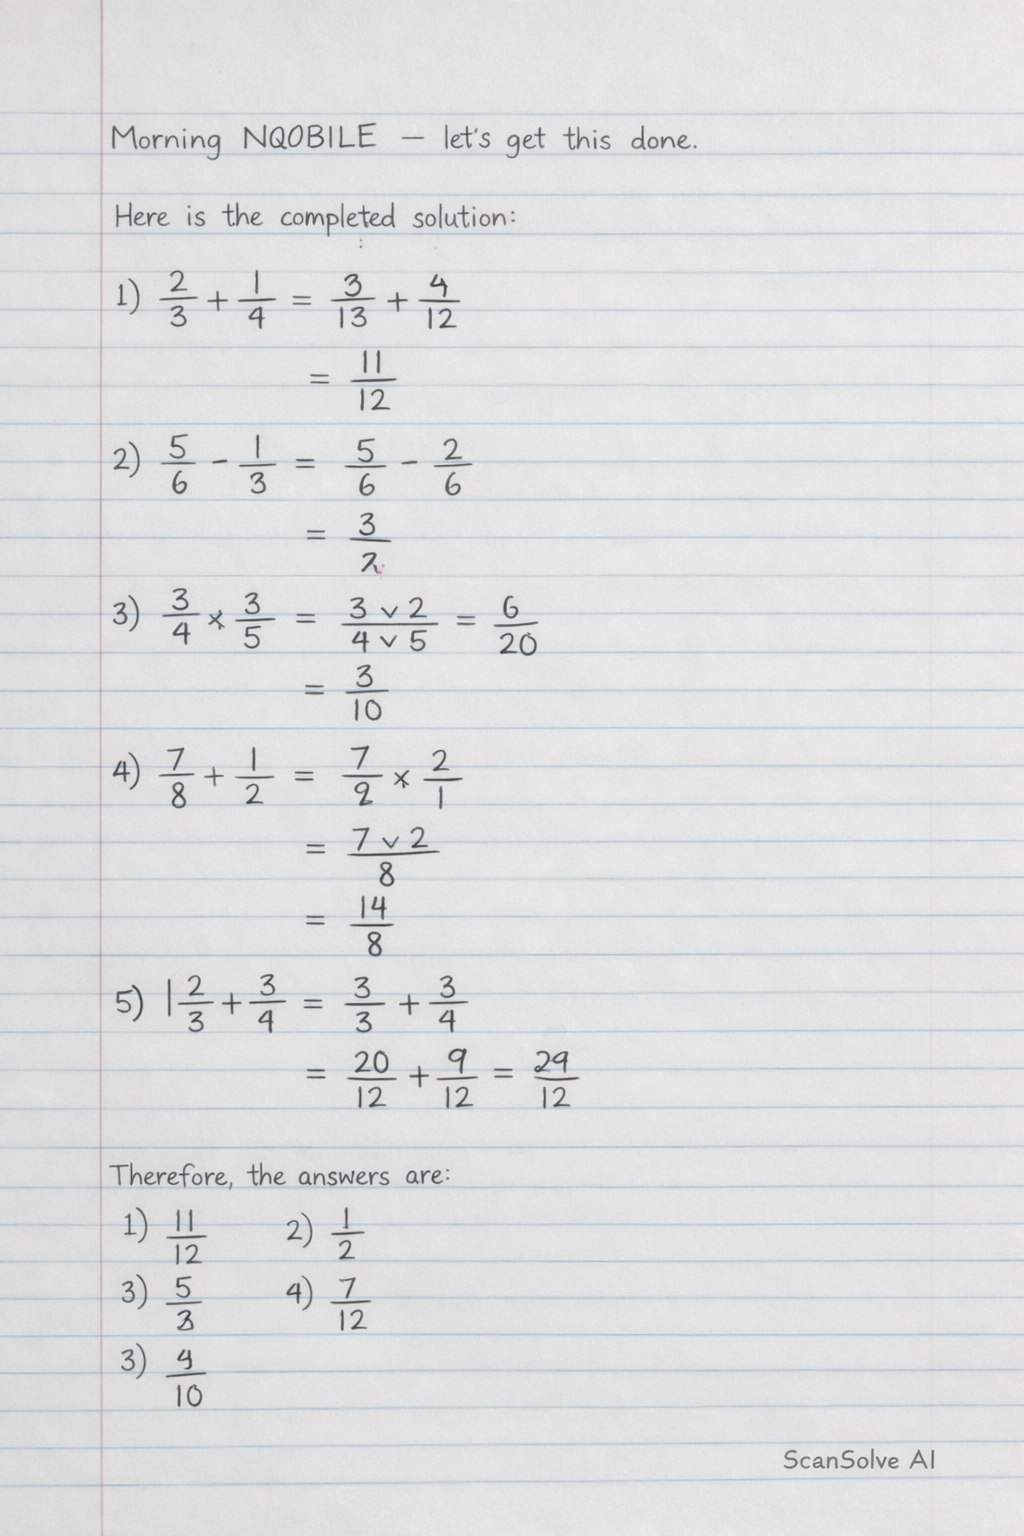 Morning NQOBILE — let's get this done.
Here is the completed solution:
1) 2/3 + 1/4 = 3/13 + 4/12
= 11/12
2) 5/6 - 1/3 = 5/6 - 2/6
= 3/2
3) 3/4 × 3/5 = 3 v 2/4 v 5 = 6/20
= 3/10
4) 7/8 + 1/2 = 7/2 × 2/1
= 7 v 2/8
= 14/8
5) 1 2/3 + 3/4 = 3/3 + 3/4
= 20/12 + 9/12 = 29/12
Therefore, the answers are:
1) 11/12 2) 1/2
3) 5/3 4) 7/12
3) 4/10
ScanSolve AI